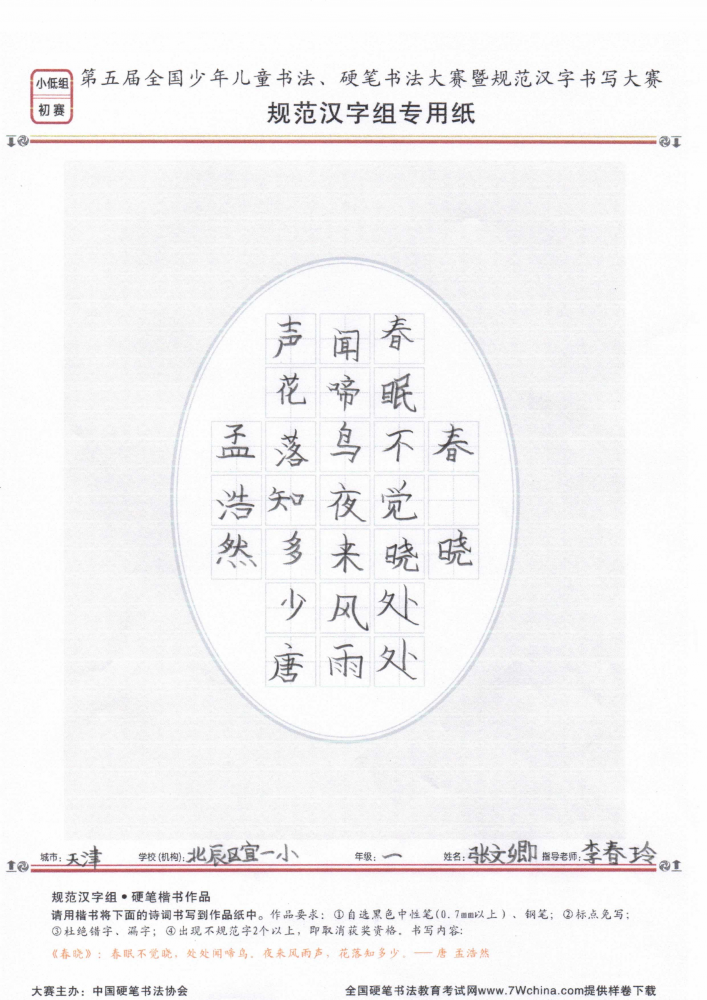 小低组
初赛
第五届全国少年儿童书法、硬笔书法大赛暨规范汉字书写大赛
规范汉字组专用纸
春晓
春眠不觉晓处处
闻啼鸟夜来风雨
声花落知多少唐
孟浩然
城市：天津 学校(机构)：北辰区宜一小 年级：一 姓名：张文卿 指导老师：李春玲
规范汉字组•硬笔楷书作品
请用楷书将下面的诗词书写到作品纸中。作品要求：①自选黑色中性笔(0.7mm以上)、钢笔；②标点免写；
③杜绝错字、漏字；④出现不规范字2个以上，即取消获奖资格。书写内容：
《春晓》：春眠不觉晓，处处闻啼鸟。夜来风雨声，花落知多少。——唐 孟浩然
大赛主办：中国硬笔书法协会 全国硬笔书法教育考试网www.7Wchina.com提供样卷下载